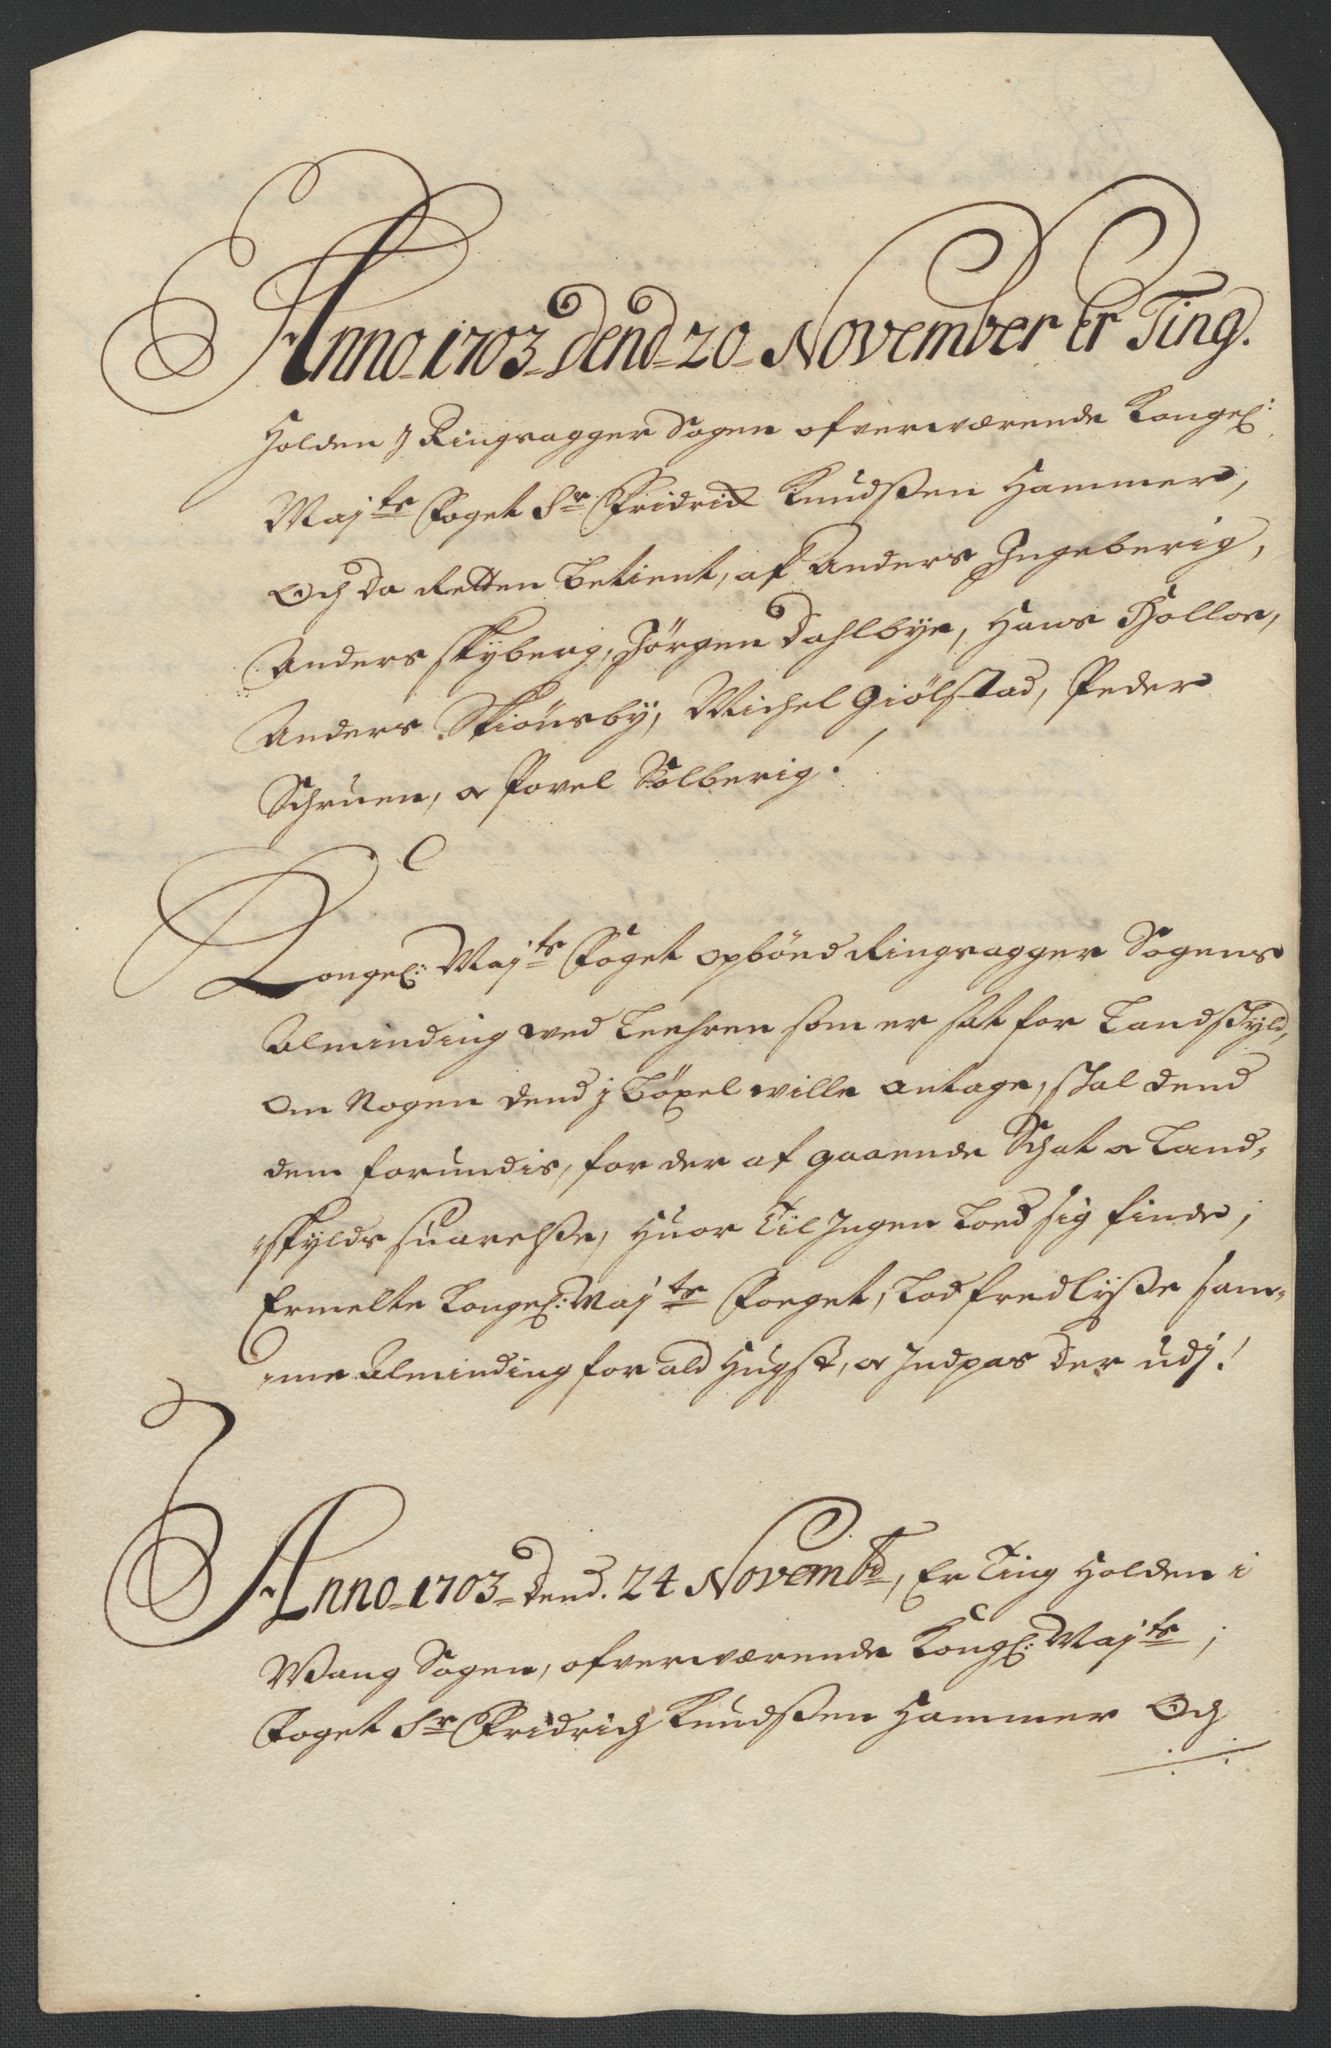 Anno 1703 dend 20 November Er Ting
Holden j Ringsagger Sogen ofverwærende Kongel:
Maj:ts Foget Sr Fridrich Knudsßen Hammer,
Och da Retten betient, af Anders Ingeberig,
Anders Skyberg, Jørgen Dahlbye, Hans Holloe,
Anders Skiönsby, Michel Giölstad, Peder
Schruen, oc Povel Solberig!
Kongel: Maj:ts Foget opbönd Ringsagger Sogens
Alminding wed Leehren som er sat for Landschyld,
Om Nogen dend j böxel wille antage, skal dend
dem forundis, for der af gaaende Schat oc Land-
skylds suarelße, Huor til Ingen loed sig finde,
Ermelte Kongel: Maj:ts Foeget, lod fredlyße sam-
me Alminding for ald Hugst, oc Indpas der udj!
Anno 1703 dend. 24 Novembr, Er Ting Holden i
Wang Sogen, ofverwærende Kongl: Maj:ts,
Foget Sr Fridrich Knudsßen Hammer Och